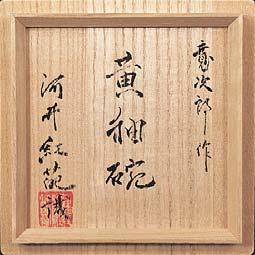 寛次郎作
黄釉碗
河井紅葩識